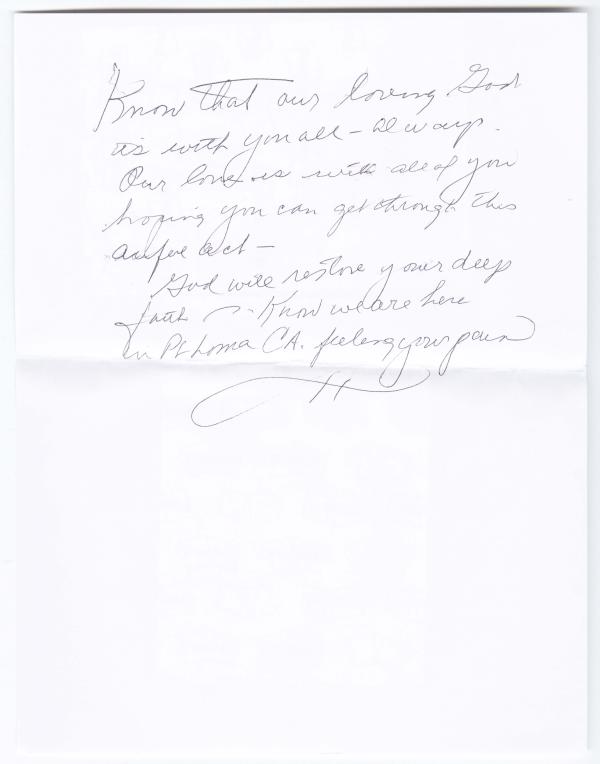 Know that our loving God
is with you all - always.
Our love is with all of you
hoping you can get through this
awful act -
God will restore your deep
faith - Know we are here
in Pt Loma CA. feeling your pain